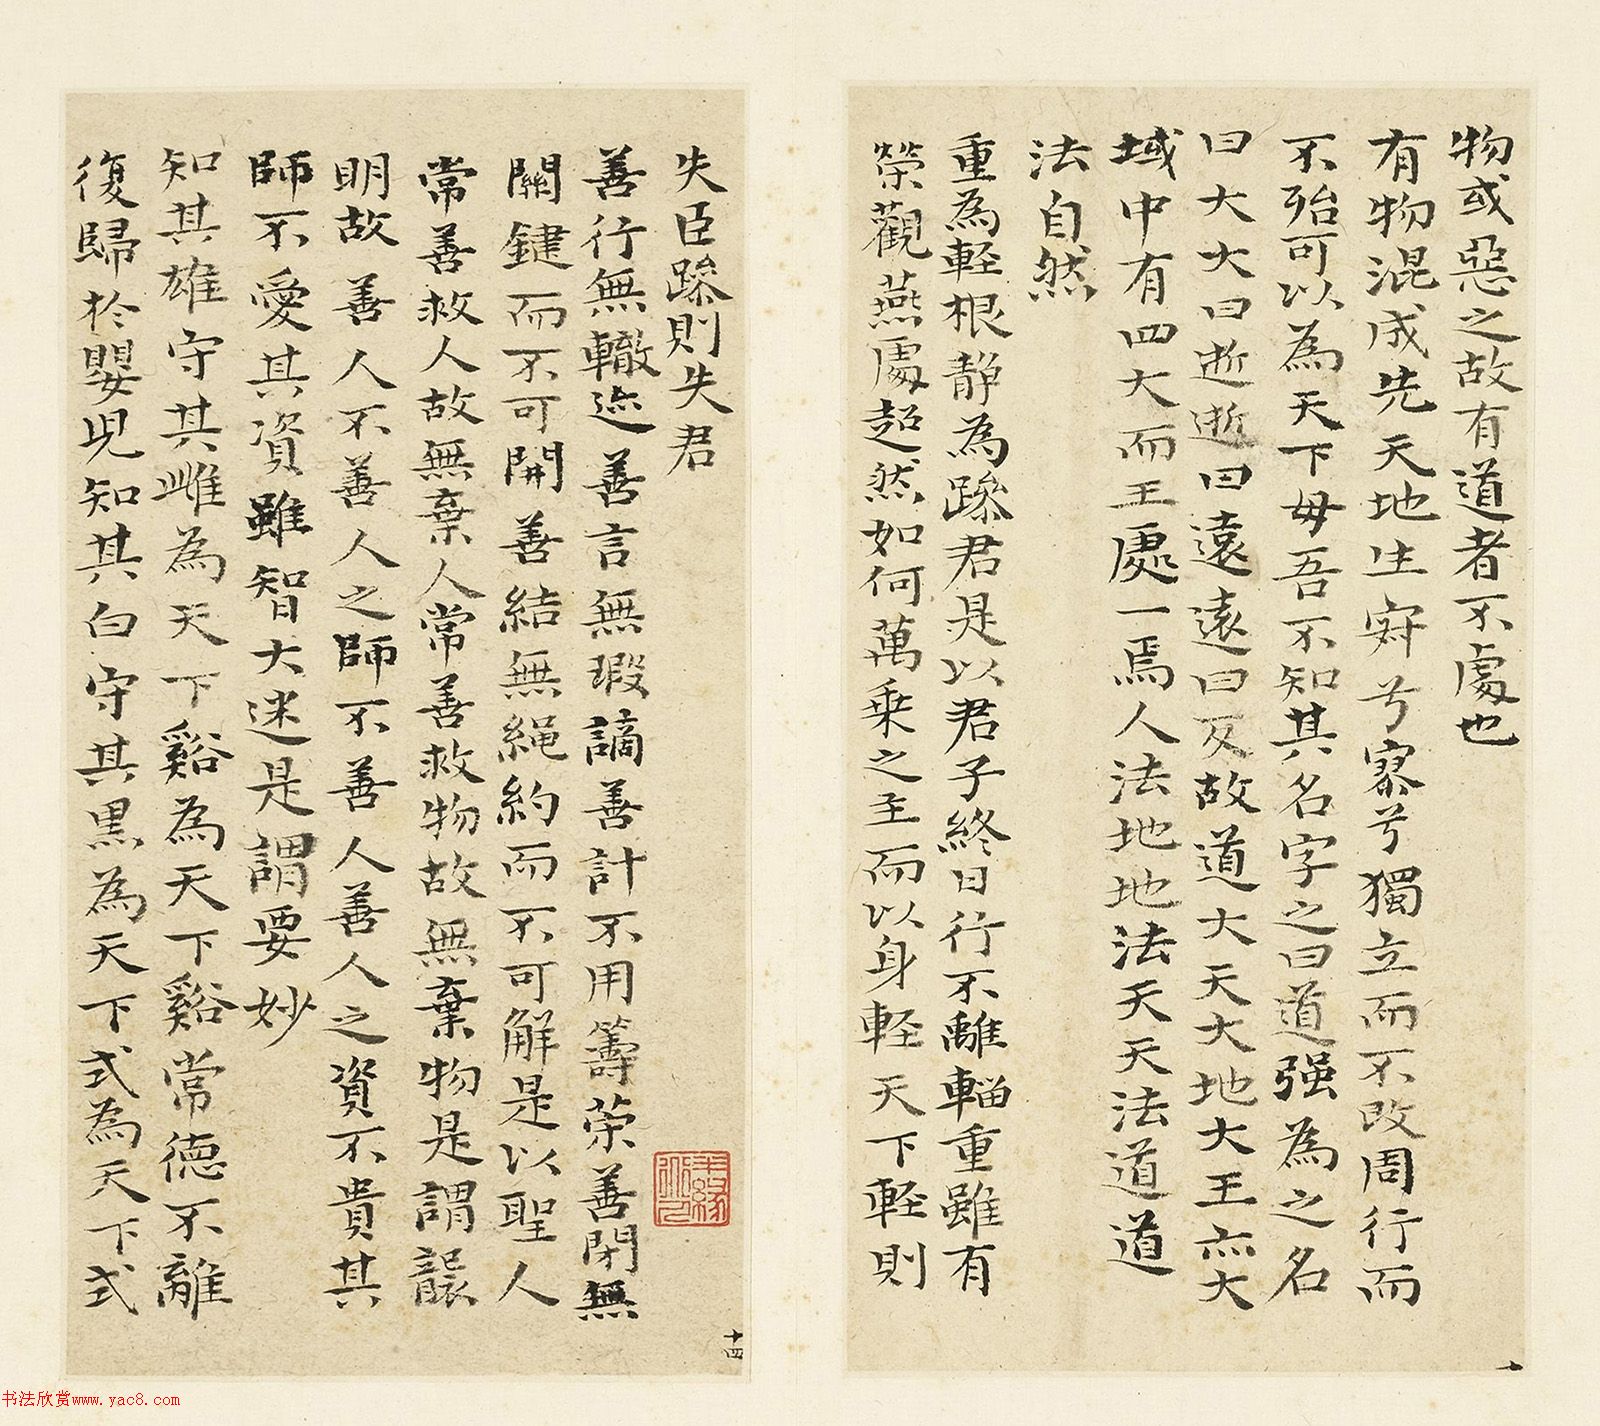 物或惡之故有道者不處也
有物混成先天地生寂兮寥兮獨立而不改周行而
不殆可以為天下母吾不知其名字之曰道强為之名
曰大大曰逝逝曰遠遠曰反故道大天大地大王亦大
域中有四大而王處一焉人法地地法天天法道道
法自然
重為輕根靜為躁君是以君子終日行不離輜重雖有
榮觀燕處超然如何萬乘之主而以身輕天下輕則
失臣躁則失君
善行無轍迹善言無瑕謫善計不用籌策善閉無
關鍵而不可開善結無繩約而不可解是以聖人
常善救人故無棄人常善救物故無棄物是謂襲
明故善人不善人之師不善人善人之資不貴其
師不愛其資雖智大迷是謂要妙
知其雄守其雌為天下谿為天下谿常德不離
復歸於嬰兒知其白守其黑為天下式為天下式
十四
书法欣赏www.yac8.com